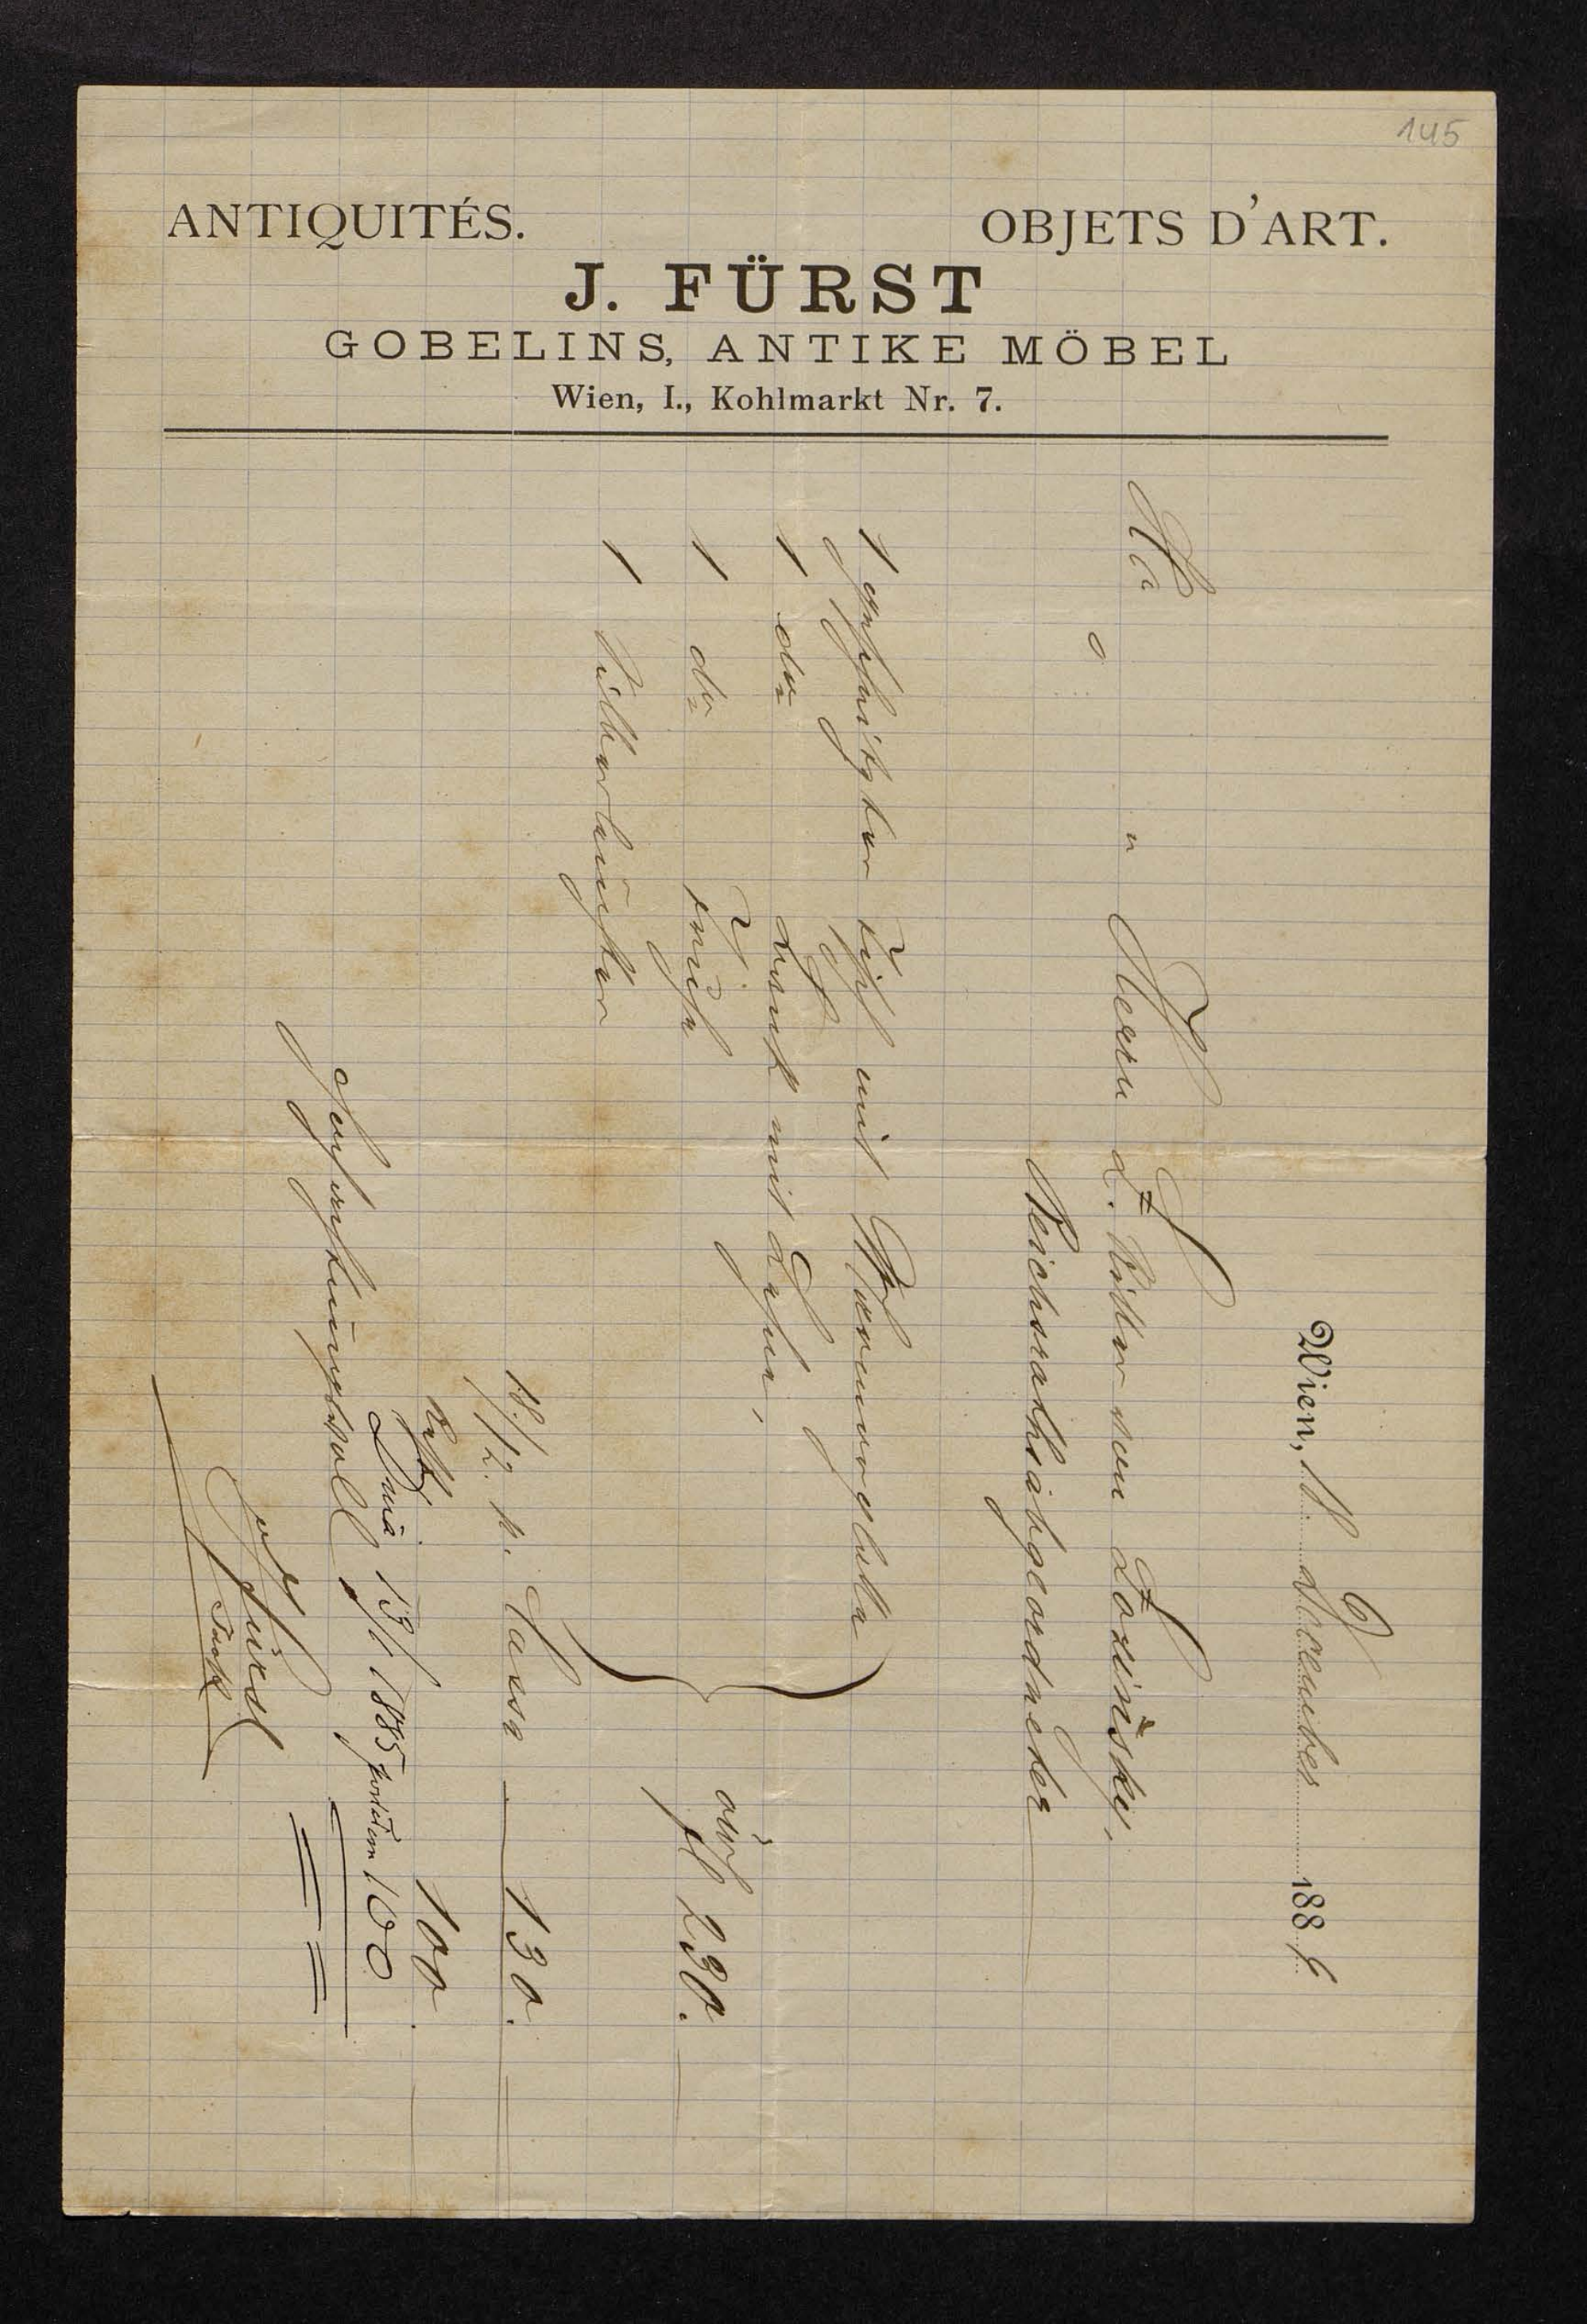 145
ANTIQUITÉS. OBJETS D'ART.
J. FÜRST
GOBELINS, ANTIKE MÖBEL
Wien, I., Kohlmarkt Nr. 7.
Wien, 18. December 188
Herrn Ritter von Łoziński,
Reichsrathsabgeordneter
1 geschnitzter Tisch mit
1 dto mit Lehne,
1 dto Truhe
1 Silberleuchter
öW
fl 230.
18./12. p. Cassa 130.
Rest 100
Dnia 13/1 1885 100
Hochachtungsvoll
Fürst